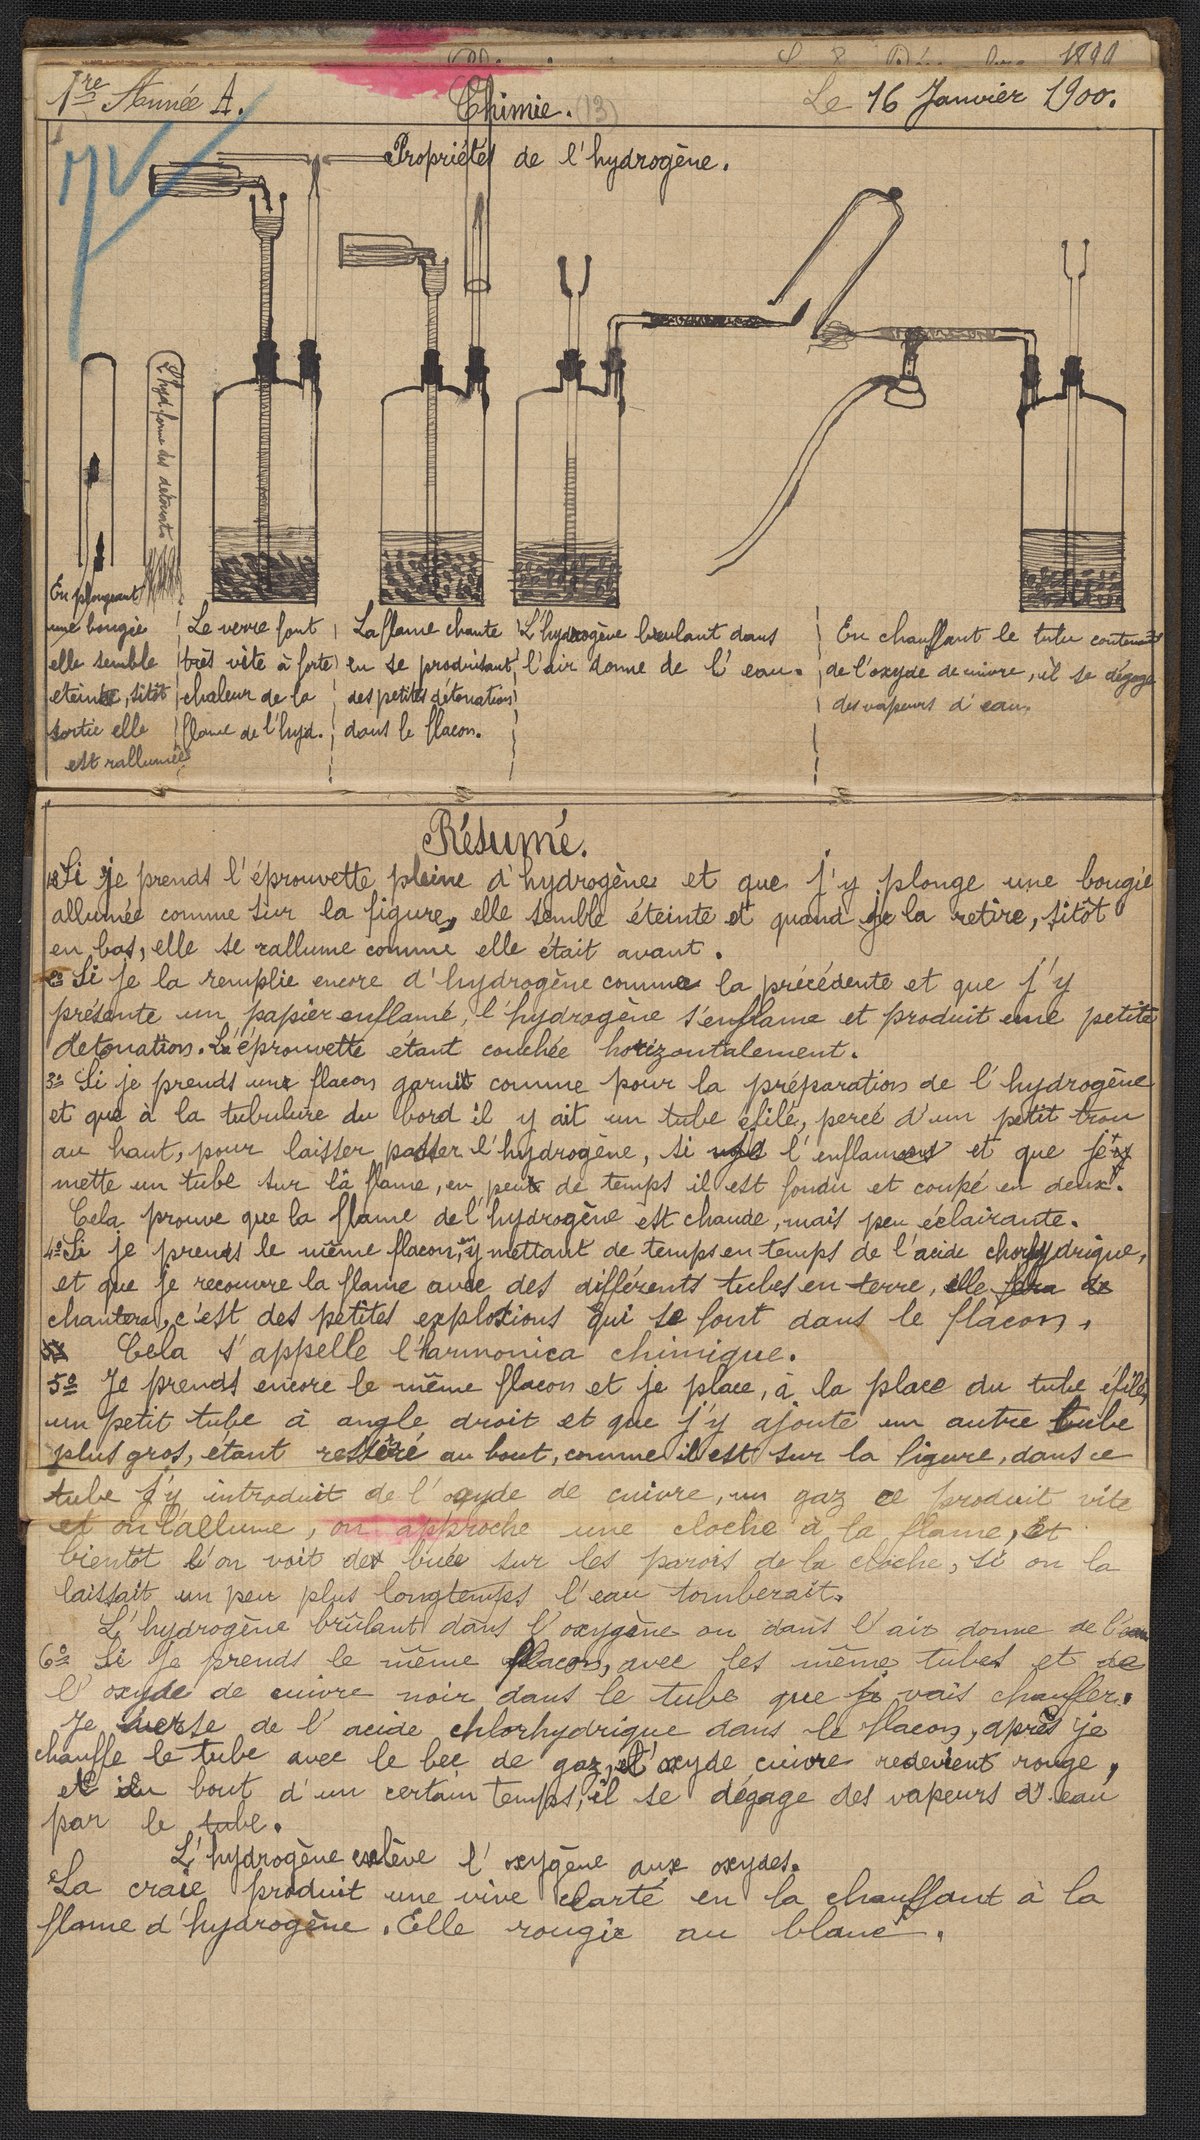 1899
1re Année A.
Chimie. (13)
Le 16 Janvier 1900.
Propriétés de l'hydrogène.
L'hyd. forme des détonat.
En plongeant
une bougie
elle semble
eteinte, sitôt
sortie elle
est rallumée
Le verre font
très vite à forte
chaleur de la
flame de l'hyd.
La flame chante
en se produisant
des petites détonation
dans le flacon.
L'hydrogène brulant dans
l'air donne de l'eau.
En chauffant le tube contenant
de l'oxyde de cuivre, il se dégage
des vapeurs d'eau.
Résumé.
1o Si je prends l'éprouvette pleine d'hydrogène et que j'y plonge une bougie
allumée comme sur la figure, elle semble éteinte et quand je la retire, sitôt
en bas, elle se rallume comme elle était avant.
2o Si je la remplie encore d'hydrogène comme la précédente et que j'y
présente un papier enflamé, l'hydrogène s'enflame et produit une petite
detonation. L'éprouvette étant couchée horizontalement.
3o Si je prends une flacon garnit comme pour la préparation de l'hydrogène
et que à la tubulure du bord il y ait un tube éfilé, percé d'un petit trou
au haut, pour laisser passer l'hydrogène, si l'enflamons et que je
mette un tube sur la flame, en peux de temps il est fondu et coupé en deux.
Cela prouve que la flame de l'hydrogène est chaude, mais peu éclairante.
4o Si je prends le même flacon, en y mettant de temps en temps de l'acide chorhydrique,
et que je recouvre la flame avec des différents tubes en terre, elle fera de
chantera, c'est des petites explosions qui se font dans le flacon.
Cela s'appelle l'harmonica chimique.
5o Je prends encore le même flacon et je place, à la place du tube éfilé,
un petit tube à angle droit et que j'y ajoute un autre tube
plus gros, étant resseré au bout, comme il est sur la figure, dans ce
tube j'y introduit de l'oxyde de cuivre, un gaz ce produit vite
et on l'allume, on approche une cloche à la flame, et
bientôt l'on voit des buée sur les parois de la cloche, si on la
laissait un peu plus longtemps l'eau tomberait.
L'hydrogène brûlant dans l'oxygène ou dans l'air donne de l'eau
6o Si je prends le même flacon, avec les même tubes et de
l'oxyde de cuivre noir dans le tube que je vais chauffer.
Je verse de l'acide chlorhydrique dans le flacon, après je
chauffe le tube avec le bec de gaz, et l'oxyde cuivre redevient rouge,
et au bout d'un certain temps, il se dégage des vapeurs d'eau
par le tube.
L'hydrogène enlève l'oxygène aux oxydes.
La craie produit une vive clarté en la chauffant à la
flame d'hydrogène. Elle rougie au blanc.